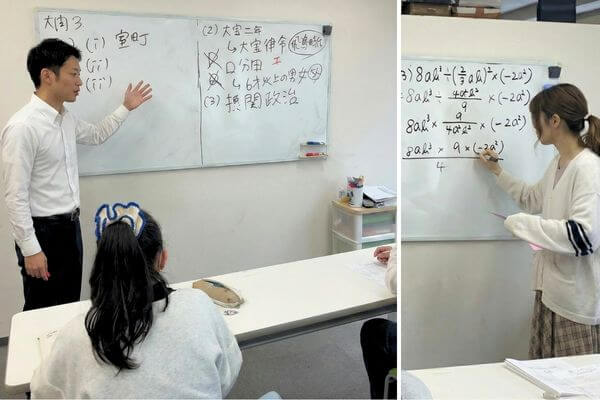 大問3.
(i) 室町
(ii)
(iii)
(2) 大宝二年
↳大宝律令 飛鳥時代
口分田
↳6才以上の男女
(3) 摂関政治
3) 8ab³÷(2/3 ab)²×(-2a²)
=8ab³÷4a²b²/9×(-2a²)
8ab³×9/4a²b²×(-2a²)
8ab³×9×(-2a²)
4